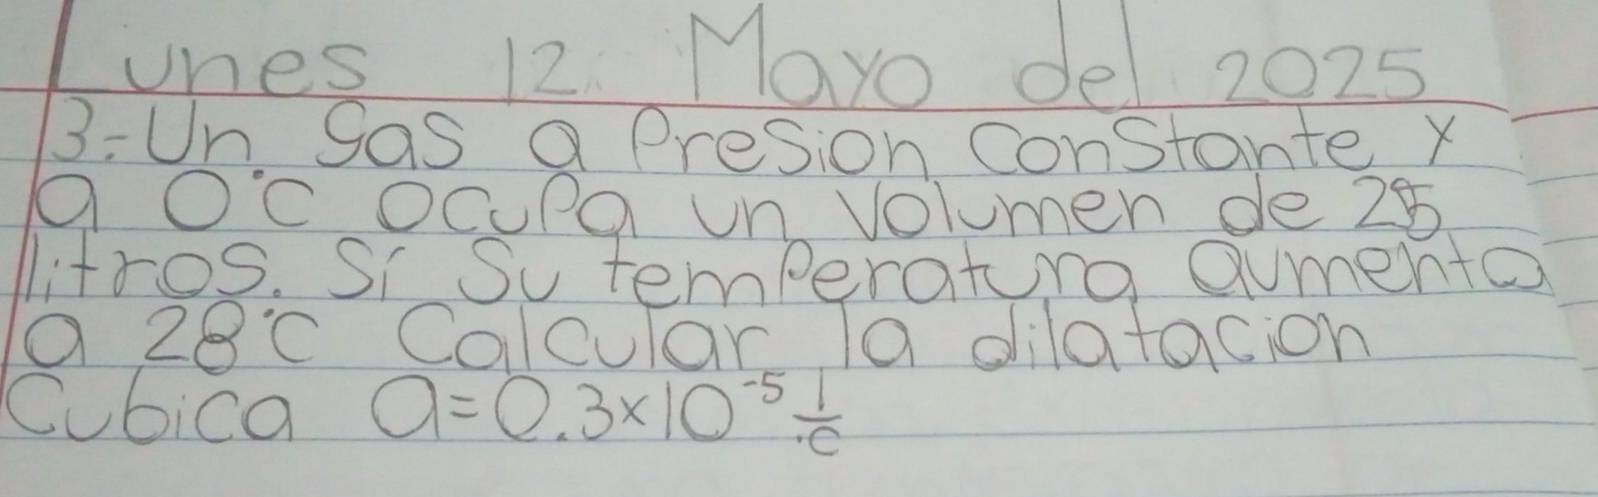 Lunes 12 Mayo del 2025
3.- Un gas a Presion constante y
a 0°c ocupa un Volumen de 25
litros. Si su temperatura aumenta
a 28°c Calcular la dilatacion
Cubica a=0.3×10⁻⁵ 1/°c